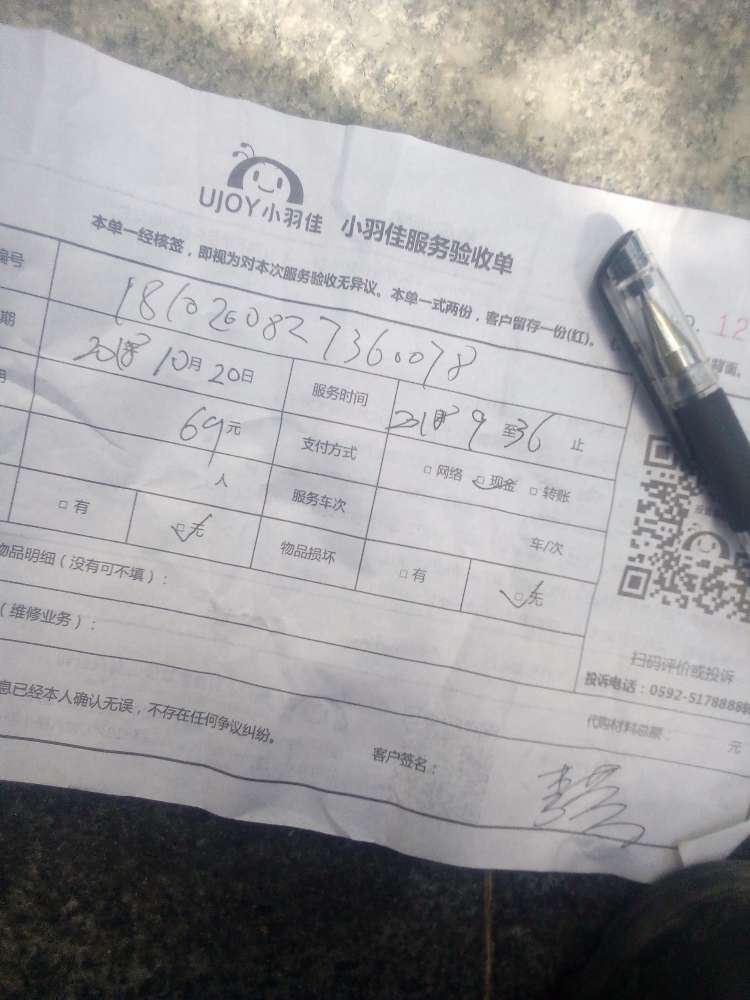 UJOY小羽佳 小羽佳服务验收单
本单一经核签，即视为对本次服务验收无异议。本单一式两份，客户留存一份(红)。
12
背面。
编号 1810200827360078
期 2018年10月20日 服务时间 9 至 36 止
69元 支付方式 □网络 □现金 □转账
人 服务车次 车/次
□有 □无 物品损坏 □有 □无
物品明细（没有可不填）：
（维修业务）：
扫码评价或投诉
投诉电话：0592-5178888转
代购材料总额： 元
息已经本人确认无误，不存在任何争议纠纷。
客户签名：